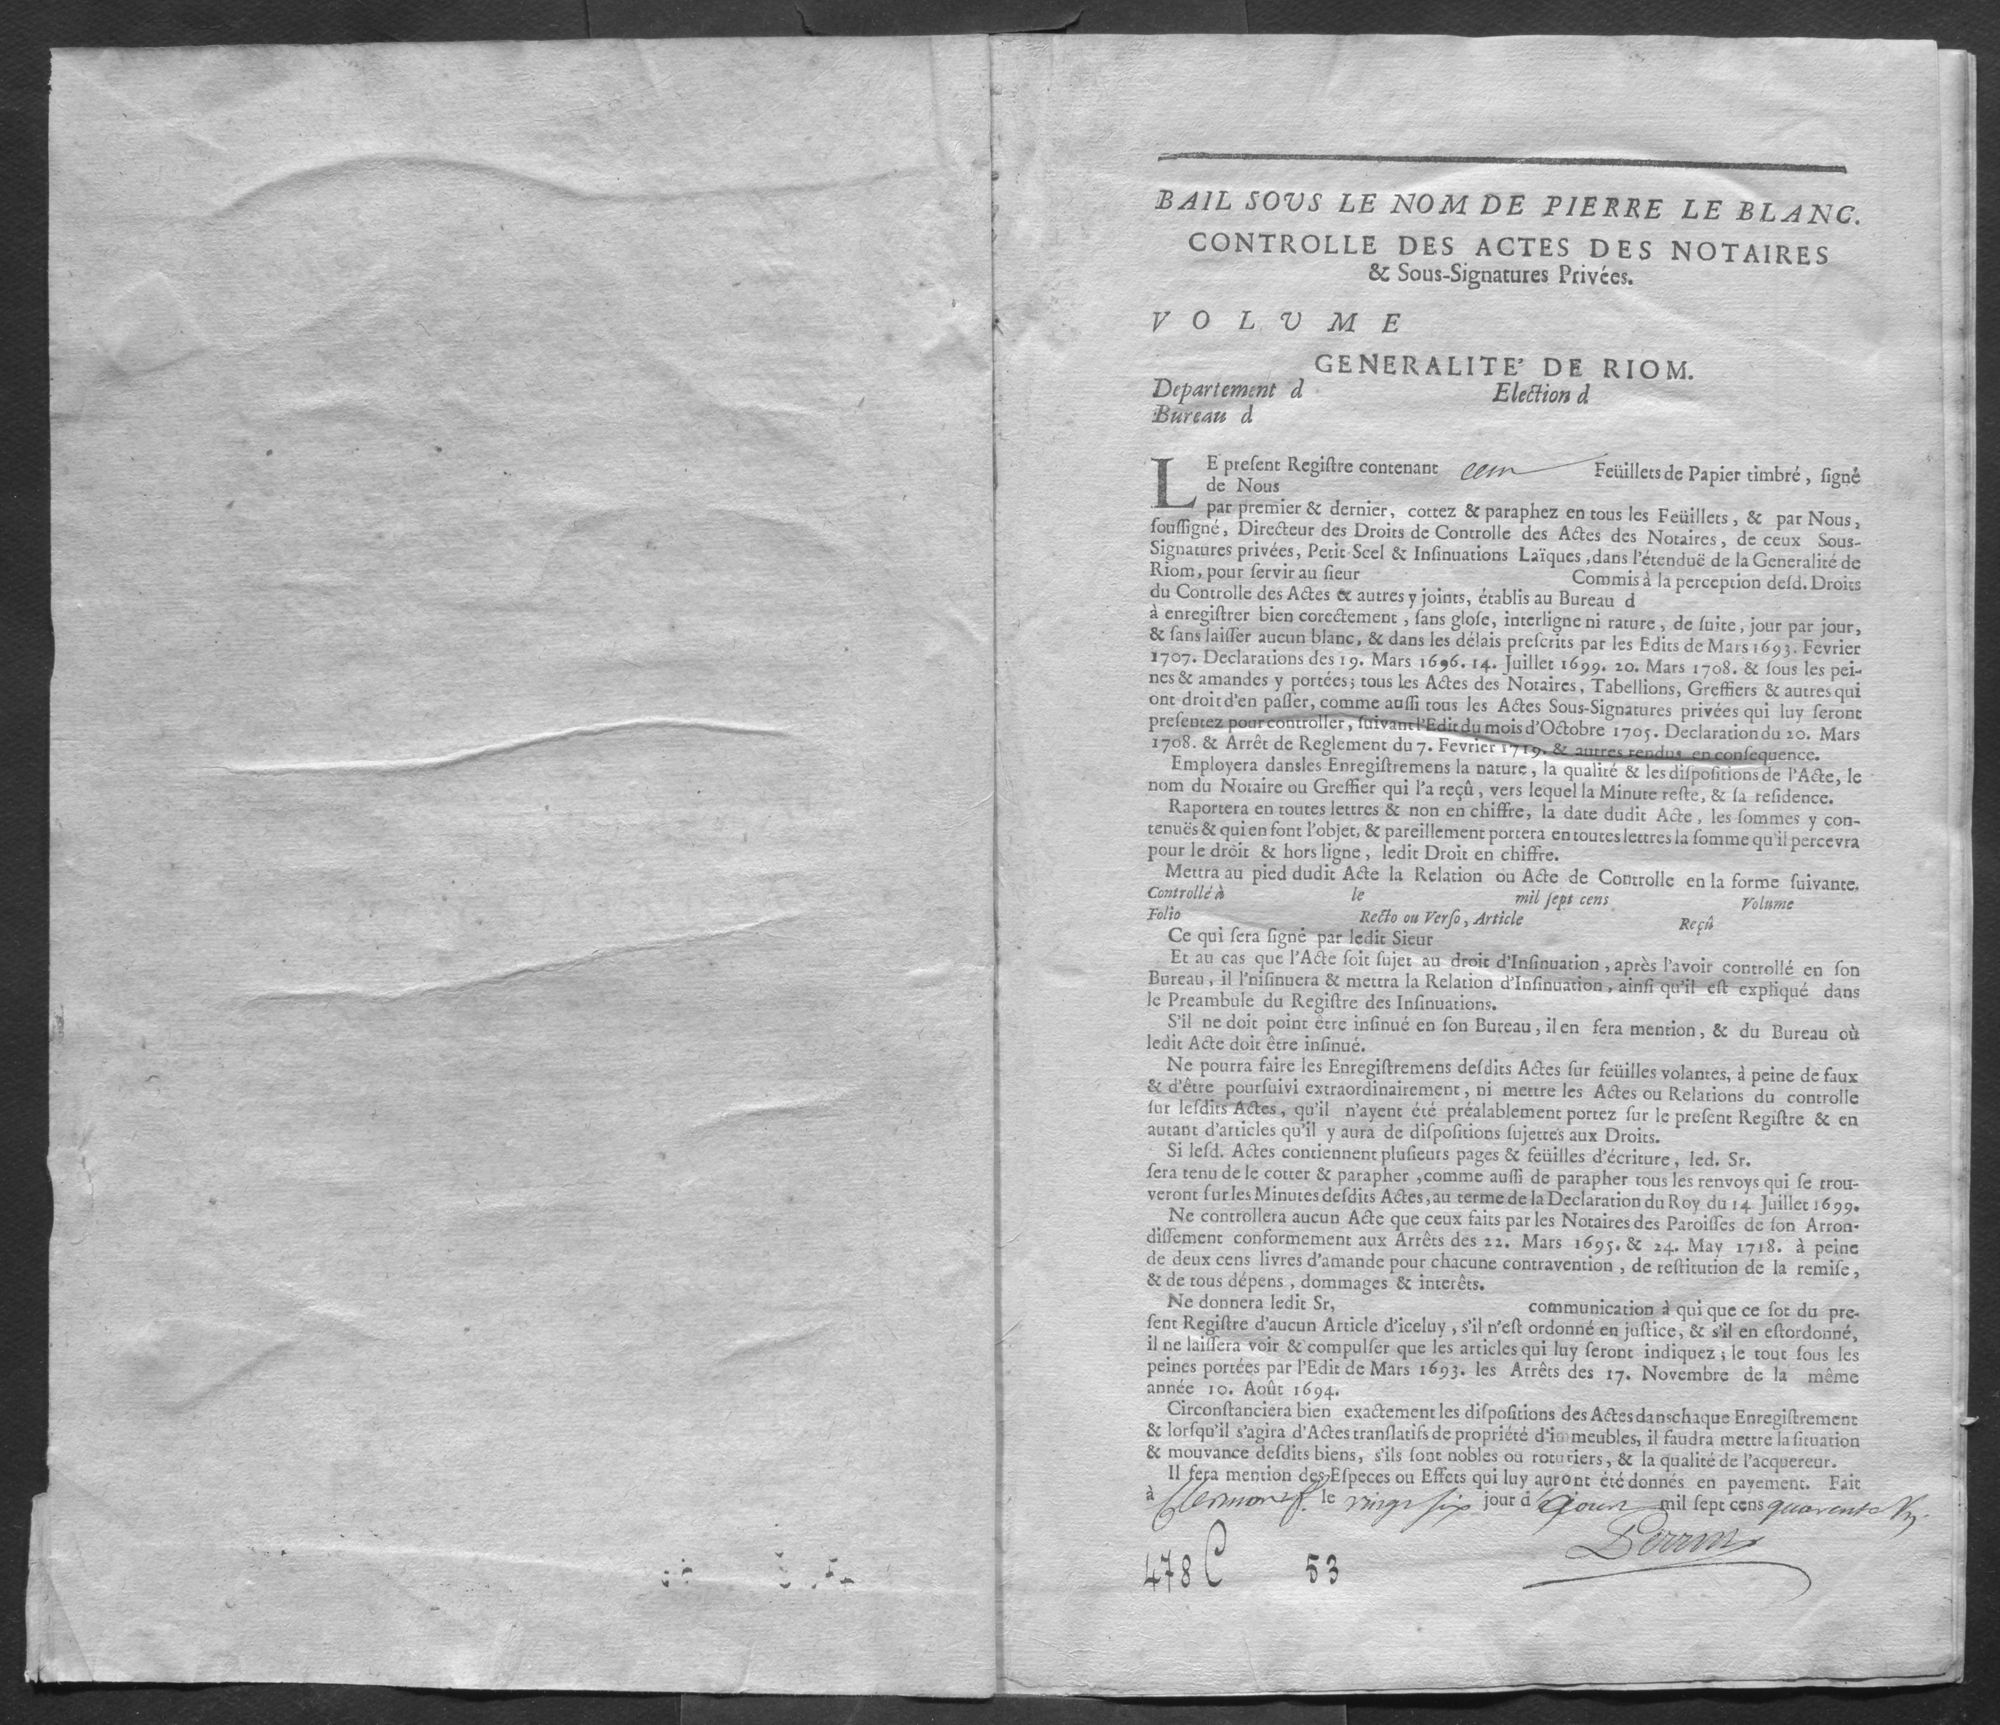 BAIL SOUS LE NOM DE PIERRE LE BLANC.
CONTROLLE DES ACTES DES NOTAIRES
& Sous-Signatures Privées.
VOLUME
GENERALITE' DE RIOM.
Departement d Election d
Bureau d
LE preſent Regiſtre contenant cent Feüillets de Papier timbré, ſigné
de Nous
par premier & dernier, cottez & paraphez en tous les Feüillets, & par Nous,
ſouſſigné, Directeur des Droits de Controlle des Actes des Notaires, de ceux Sous-
Signatures privées, Petit Scel & Inſinuations Laïques, dans l'étenduë de la Generalité de
Riom, pour ſervir au ſieur Commis à la perception deſd. Droits
du Controlle des Actes & autres y joints, établis au Bureau d
à enregiſtrer bien corectement, ſans gloſe, interligne ni rature, de ſuite, jour par jour,
& ſans laiſſer aucun blanc, & dans les délais preſcrits par les Edits de Mars 1693. Fevrier
1707. Declarations des 19. Mars 1696. 14. Juillet 1699. 20. Mars 1708. & ſous les pei-
nes & amandes y portées; tous les Actes des Notaires, Tabellions, Greffiers & autres qui
ont droit d'en paſſer, comme auſſi tous les Actes Sous-Signatures privées qui luy ſeront
preſentez pour controller, ſuivant l'Edit du mois d'Octobre 1705. Declaration du 20. Mars
1708. & Arrêt de Reglement du 7. Fevrier 1719. & autres rendus en conſequence.
Employera dansles Enregiſtremens la nature, la qualité & les diſpoſitions de l'Acte, le
nom du Notaire ou Greffier qui l'a reçû, vers lequel la Minute reſte, & ſa reſidence.
Raportera en toutes lettres & non en chiffre, la date dudit Acte, les ſommes y con-
tenuës & qui en font l'objet, & pareillement portera en toutes lettres la ſomme qu'il percevra
pour le droit & hors ligne, ledit Droit en chiffre.
Mettra au pied dudit Acte la Relation ou Acte de Controlle en la forme ſuivante.
Controllé à le mil ſept cens Volume
Folio Recto ou Verſo, Article Reçû
Ce qui ſera ſigné par ledit Sieur
Et au cas que l'Acte ſoit ſujet au droit d'Inſinuation, après l'avoir controllé en ſon
Bureau, il l'niſinuera & mettra la Relation d'Inſinuation, ainſi qu'il eſt expliqué dans
le Preambule du Regiſtre des Inſinuations.
S'il ne doit point être inſinué en ſon Bureau, il en fera mention, & du Bureau où
ledit Acte doit être inſinué.
Ne pourra faire les Enregiſtremens deſdits Actes ſur feüilles volantes, à peine de faux
& d'être pourſuivi extraordinairement, ni mettre les Actes ou Relations du controlle
ſur leſdits Actes, qu'il n'ayent été préalablement portez ſur le preſent Regiſtre & en
autant d'articles qu'il y aura de diſpoſitions ſujettes aux Droits.
Si leſd. Actes contiennent pluſieurs pages & feüilles d'écriture, led. Sr.
ſera tenu de le cotter & parapher, comme auſſi de parapher tous les renvoys qui ſe trou-
veront ſur les Minutes deſdits Actes, au terme de la Declaration du Roy du 14 Juillet 1699.
Ne controllera aucun Acte que ceux faits par les Notaires des Paroiſſes de ſon Arron-
diſſement conformement aux Arrêts des 22. Mars 1695. & 24. May 1718. à peine
de deux cens livres d'amande pour chacune contravention, de reſtitution de la remiſe,
& de tous dépens, dommages & interêts.
Ne donnera ledit Sr, communication à qui que ce ſot du pre-
ſent Regiſtre d'aucun Article d'iceluy, s'il n'eſt ordonné en juſtice, & s'il en eſtordonné,
il ne laiſſera voir & compulſer que les articles qui luy ſeront indiquez; le tout ſous les
peines portées par l'Edit de Mars 1693. les Arrêts des 17. Novembre de la même
année 10. Août 1694.
Circonſtanciera bien exactement les diſpoſitions des Actes danschaque Enregiſtrement
& lorſqu'il s'agira d'Actes tranſlatifs de propriété d'immeubles, il faudra mettre la ſituation
& mouvance deſdits biens, s'ils ſont nobles ou roturiers, & la qualité de l'acquereur.
Il fera mention des Eſpeces ou Effets qui luy auront été donnés en payement. Fait
à Clermont f. le vingt six jour d'aoust mil ſept cens quarante
Perrin
478 C 53